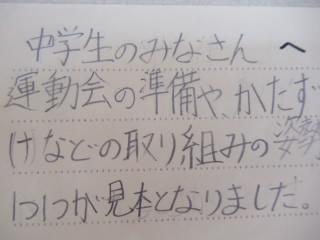 中学生のみなさん へ
運動会の準備や、かたず
けなどの取り組みの姿勢
1つ1つが見本となりました。